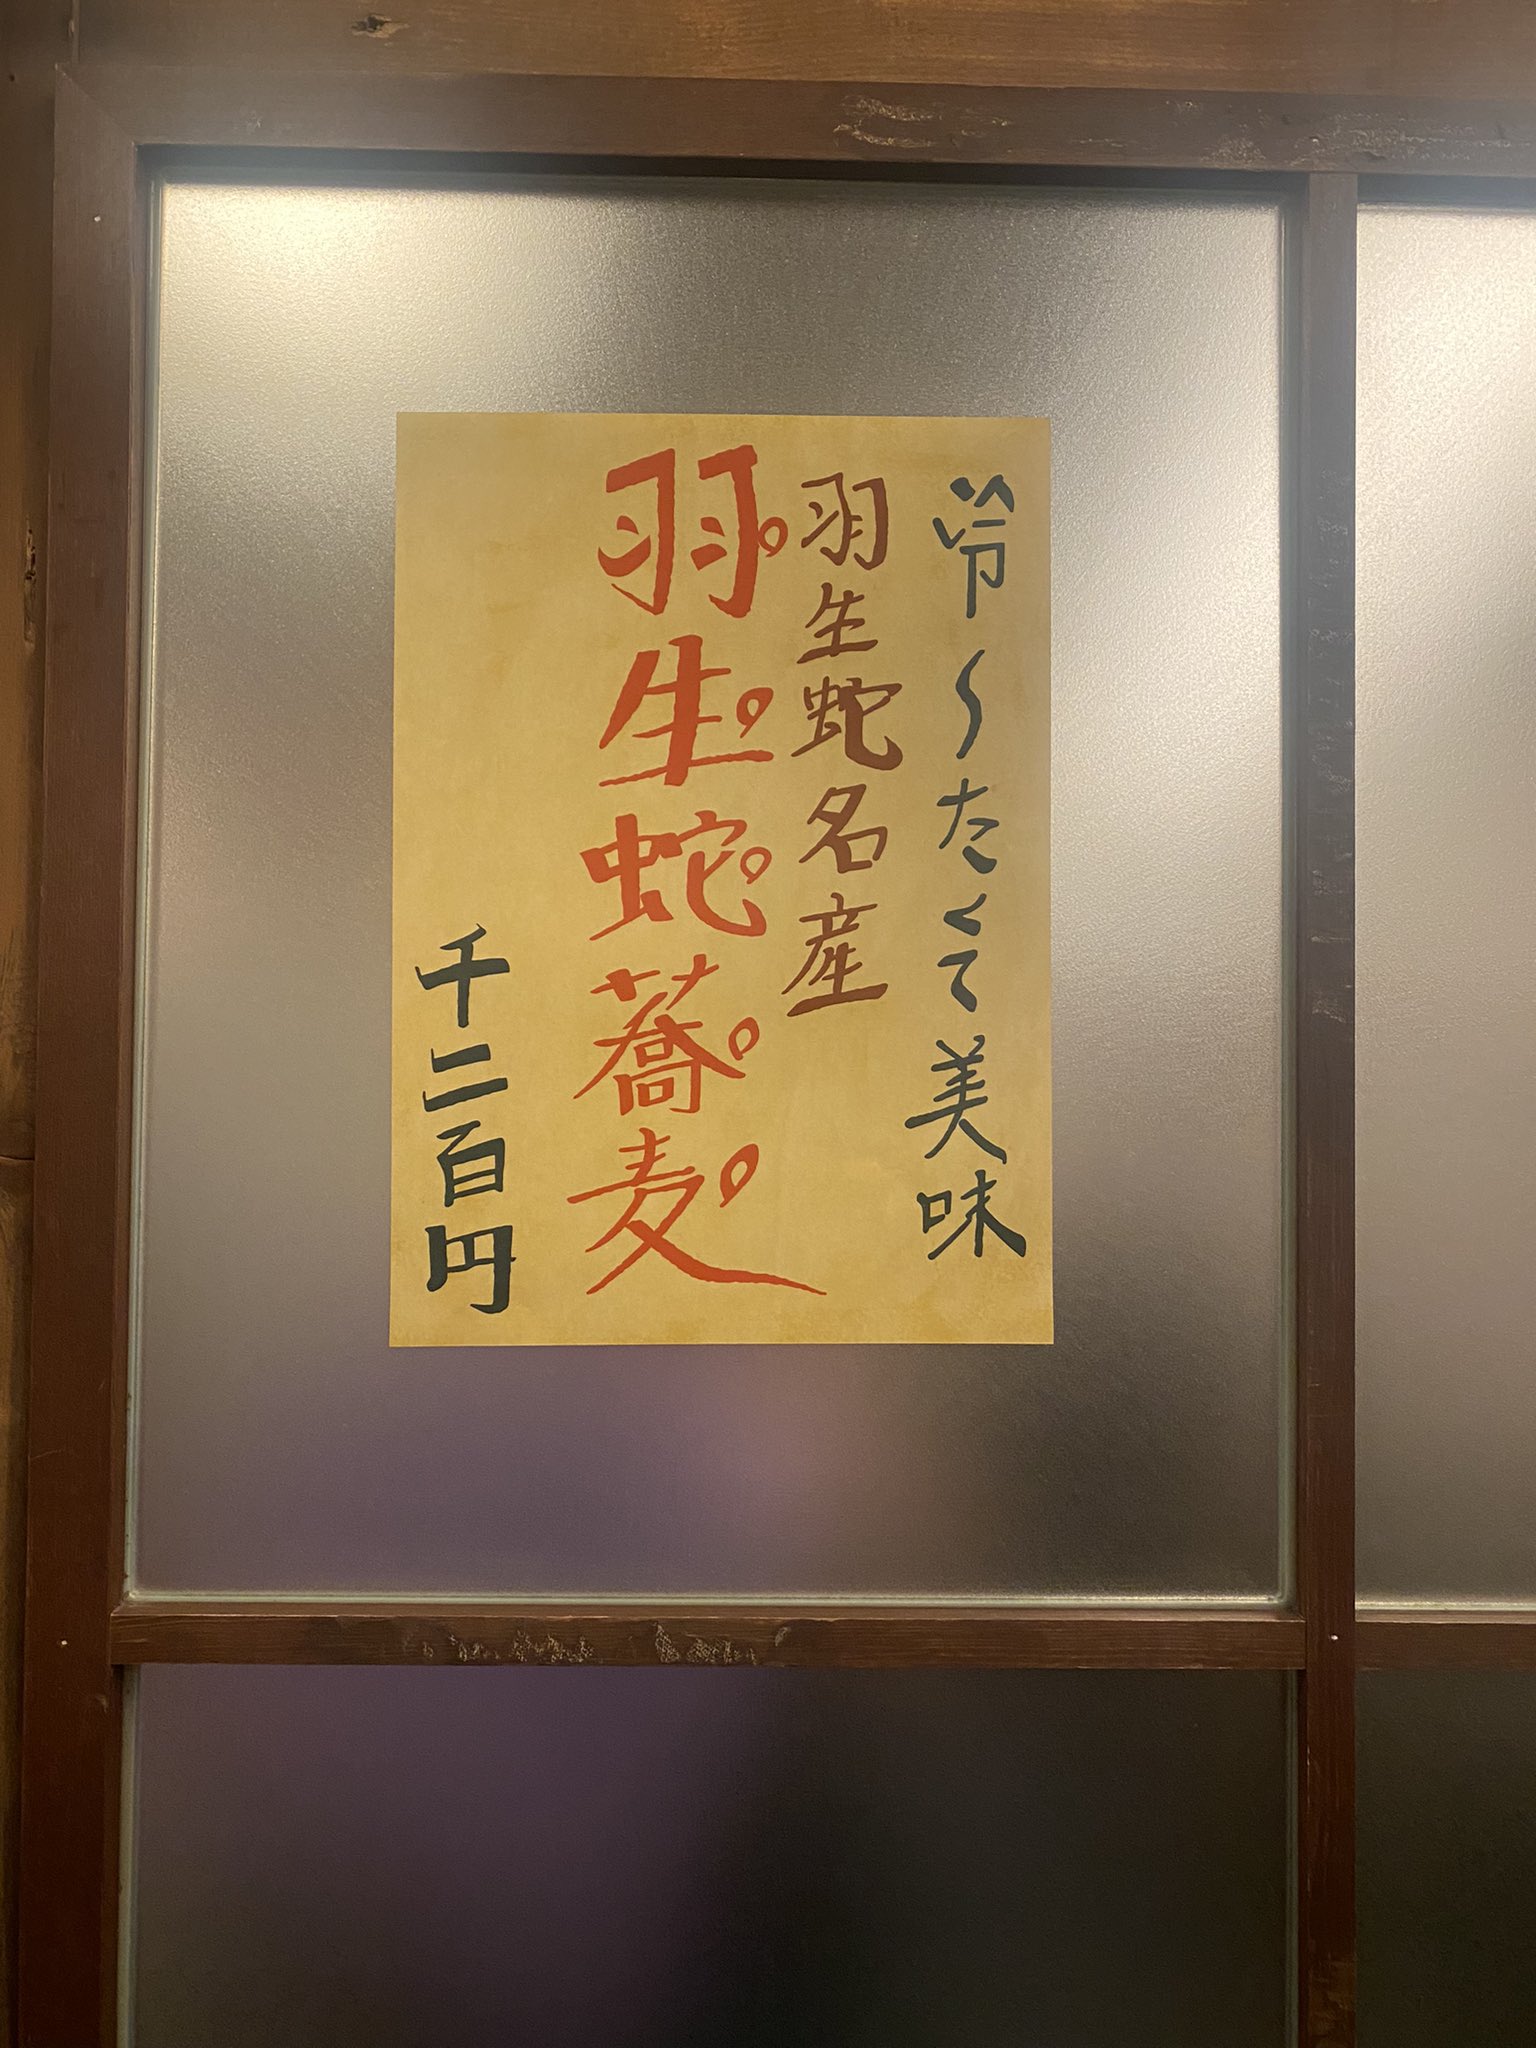 冷〜たくて美味
羽生蛇名産
羽生蛇蕎麦
千二百円